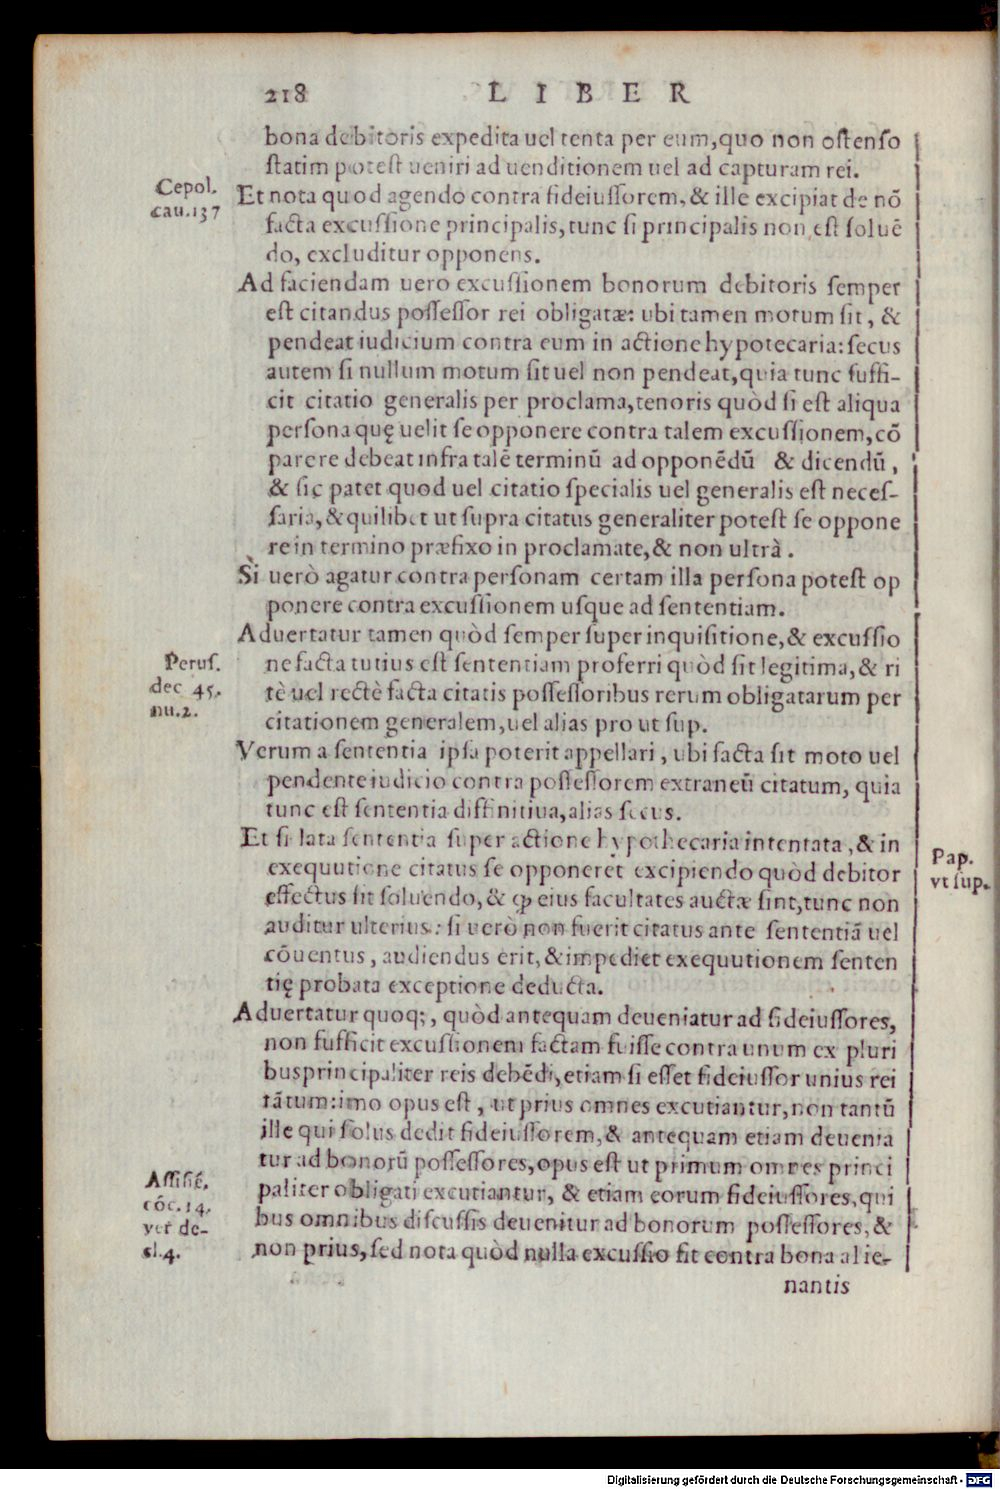 218 LIBER
bona debitoris expedita uel tenta per eum, quo non ostenso
statim potest ueniri ad uenditionem uel ad capturam rei.
Cepol.
cau.137
Et nota quod agendo contra fideiussorem, & ille excipiat de nō
facta excussione principalis, tunc si principalis non est soluē
do, excluditur opponens.
Ad faciendam uero excussionem bonorum debitoris semper
est citandus possessor rei obligatæ: ubi tamen motum sit, &
pendeat iudicium contra eum in actione hypotecaria: secus
autem si nullum motum sit uel non pendeat, quia tunc suffi-
cit citatio generalis per proclama, tenoris quòd si est aliqua
persona quę uelit se opponere contra talem excussionem, cō
parere debeat infra talē terminū ad opponēdū & dicendū,
& sic patet quod uel citatio specialis uel generalis est neces-
saria, & quilibet ut supra citatus generaliter potest se oppone
re in termino præfixo in proclamate, & non ultrà.
Sì uerò agatur contra personam certam illa persona potest op
ponere contra excussionem usque ad sententiam.
Aduertatur tamen quòd semper super inquisitione, & excussio
Perus.
dec 45.
nu.2.
ne facta tutius est sententiam proferri quòd sit legitima, & ri
tè uel rectè facta citatis possessoribus rerum obligatarum per
citationem generalem, uel alias pro ut sup.
Verum a sententia ipsa poterit appellari, ubi facta sit moto uel
pendente iudicio contra possessorem extraneū citatum, quia
tunc est sententia diffinitiua, alias secus.
Et si lata sententia super actione hypothecaria intentata, & in
Pap.
vt sup.
exequutione citatus se opponeret excipiendo quòd debitor
effectus sit soluendo, & ꝙ eius facultates auctæ sint, tunc non
auditur ulterius: si uerò non fuerit citatus ante sententiā uel
cōuentus, audiendus erit, & impediet exequutionem senten
tię probata exceptione deducta.
Aduertatur quoq;, quòd antequam deueniatur ad fideiussores,
non sufficit excussionem factam fuisse contra unum ex pluri
bus principaliter reis debēdi, etiam si esset fideiussor unius rei
tātum: imo opus est, ut prius omnes excutiantur, non tantū
ille qui solus dedit fideiussorem, & antequam etiam deuenia
tur ad bonorū possessores, opus est ut primum omnes princi
Affisié.
cōc.14.
ver de-
sl.4.
paliter obligati excutiantur, & etiam eorum fideiussores, qui
bus omnibus discussis deuenitur ad bonorum possessores, &
non prius, sed nota quòd nulla excussio fit contra bona alie-
nantis
Digitalisierung gefördert durch die Deutsche Forschungsgemeinschaft - DFG